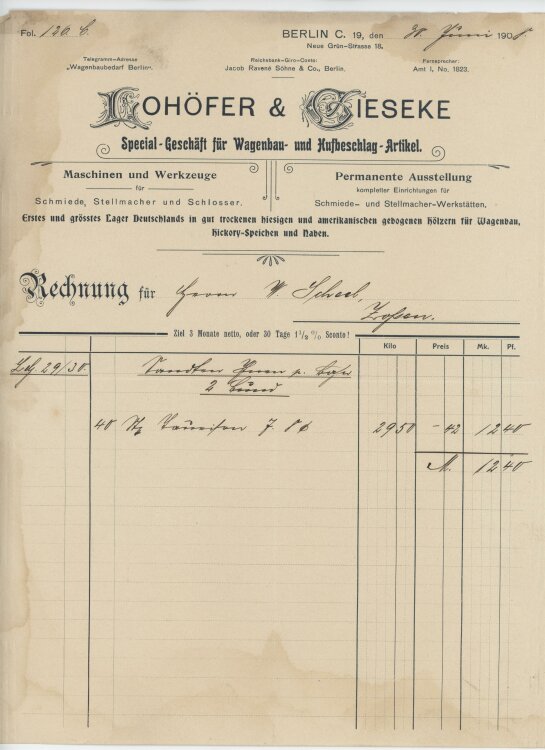 Fol. 126. C.
BERLIN C. 19, den 30. Juni 1908.
Neue Grün-Strasse 18.
Telegramm-Adresse
„Wagenbaubedarf Berlin“.
Reichsbank-Giro-Conto:
Jacob Ravené Söhne & Co., Berlin.
Fernsprecher:
Amt I, No. 1823.
LOHÖFER & GIESEKE
Special-Geschäft für Wagenbau- und Hufbeschlag-Artikel.
Maschinen und Werkzeuge
für
Schmiede, Stellmacher und Schlosser.
Permanente Ausstellung
kompletter Einrichtungen für
Schmiede- und Stellmacher-Werkstätten.
Erstes und grösstes Lager Deutschlands in gut trockenen hiesigen und amerikanischen gebogenen Hölzern für Wagenbau,
Hickory-Speichen und Naben.
Rechnung für Herrn W. Scheel,
Zossen.
Ziel 3 Monate netto, oder 30 Tage 1½ % Sconto!
Kilo Preis Mk. Pf.
29/30. Sandten Ihnen p.
2 Bund
40 2950 -42 12 40
M. 12 40